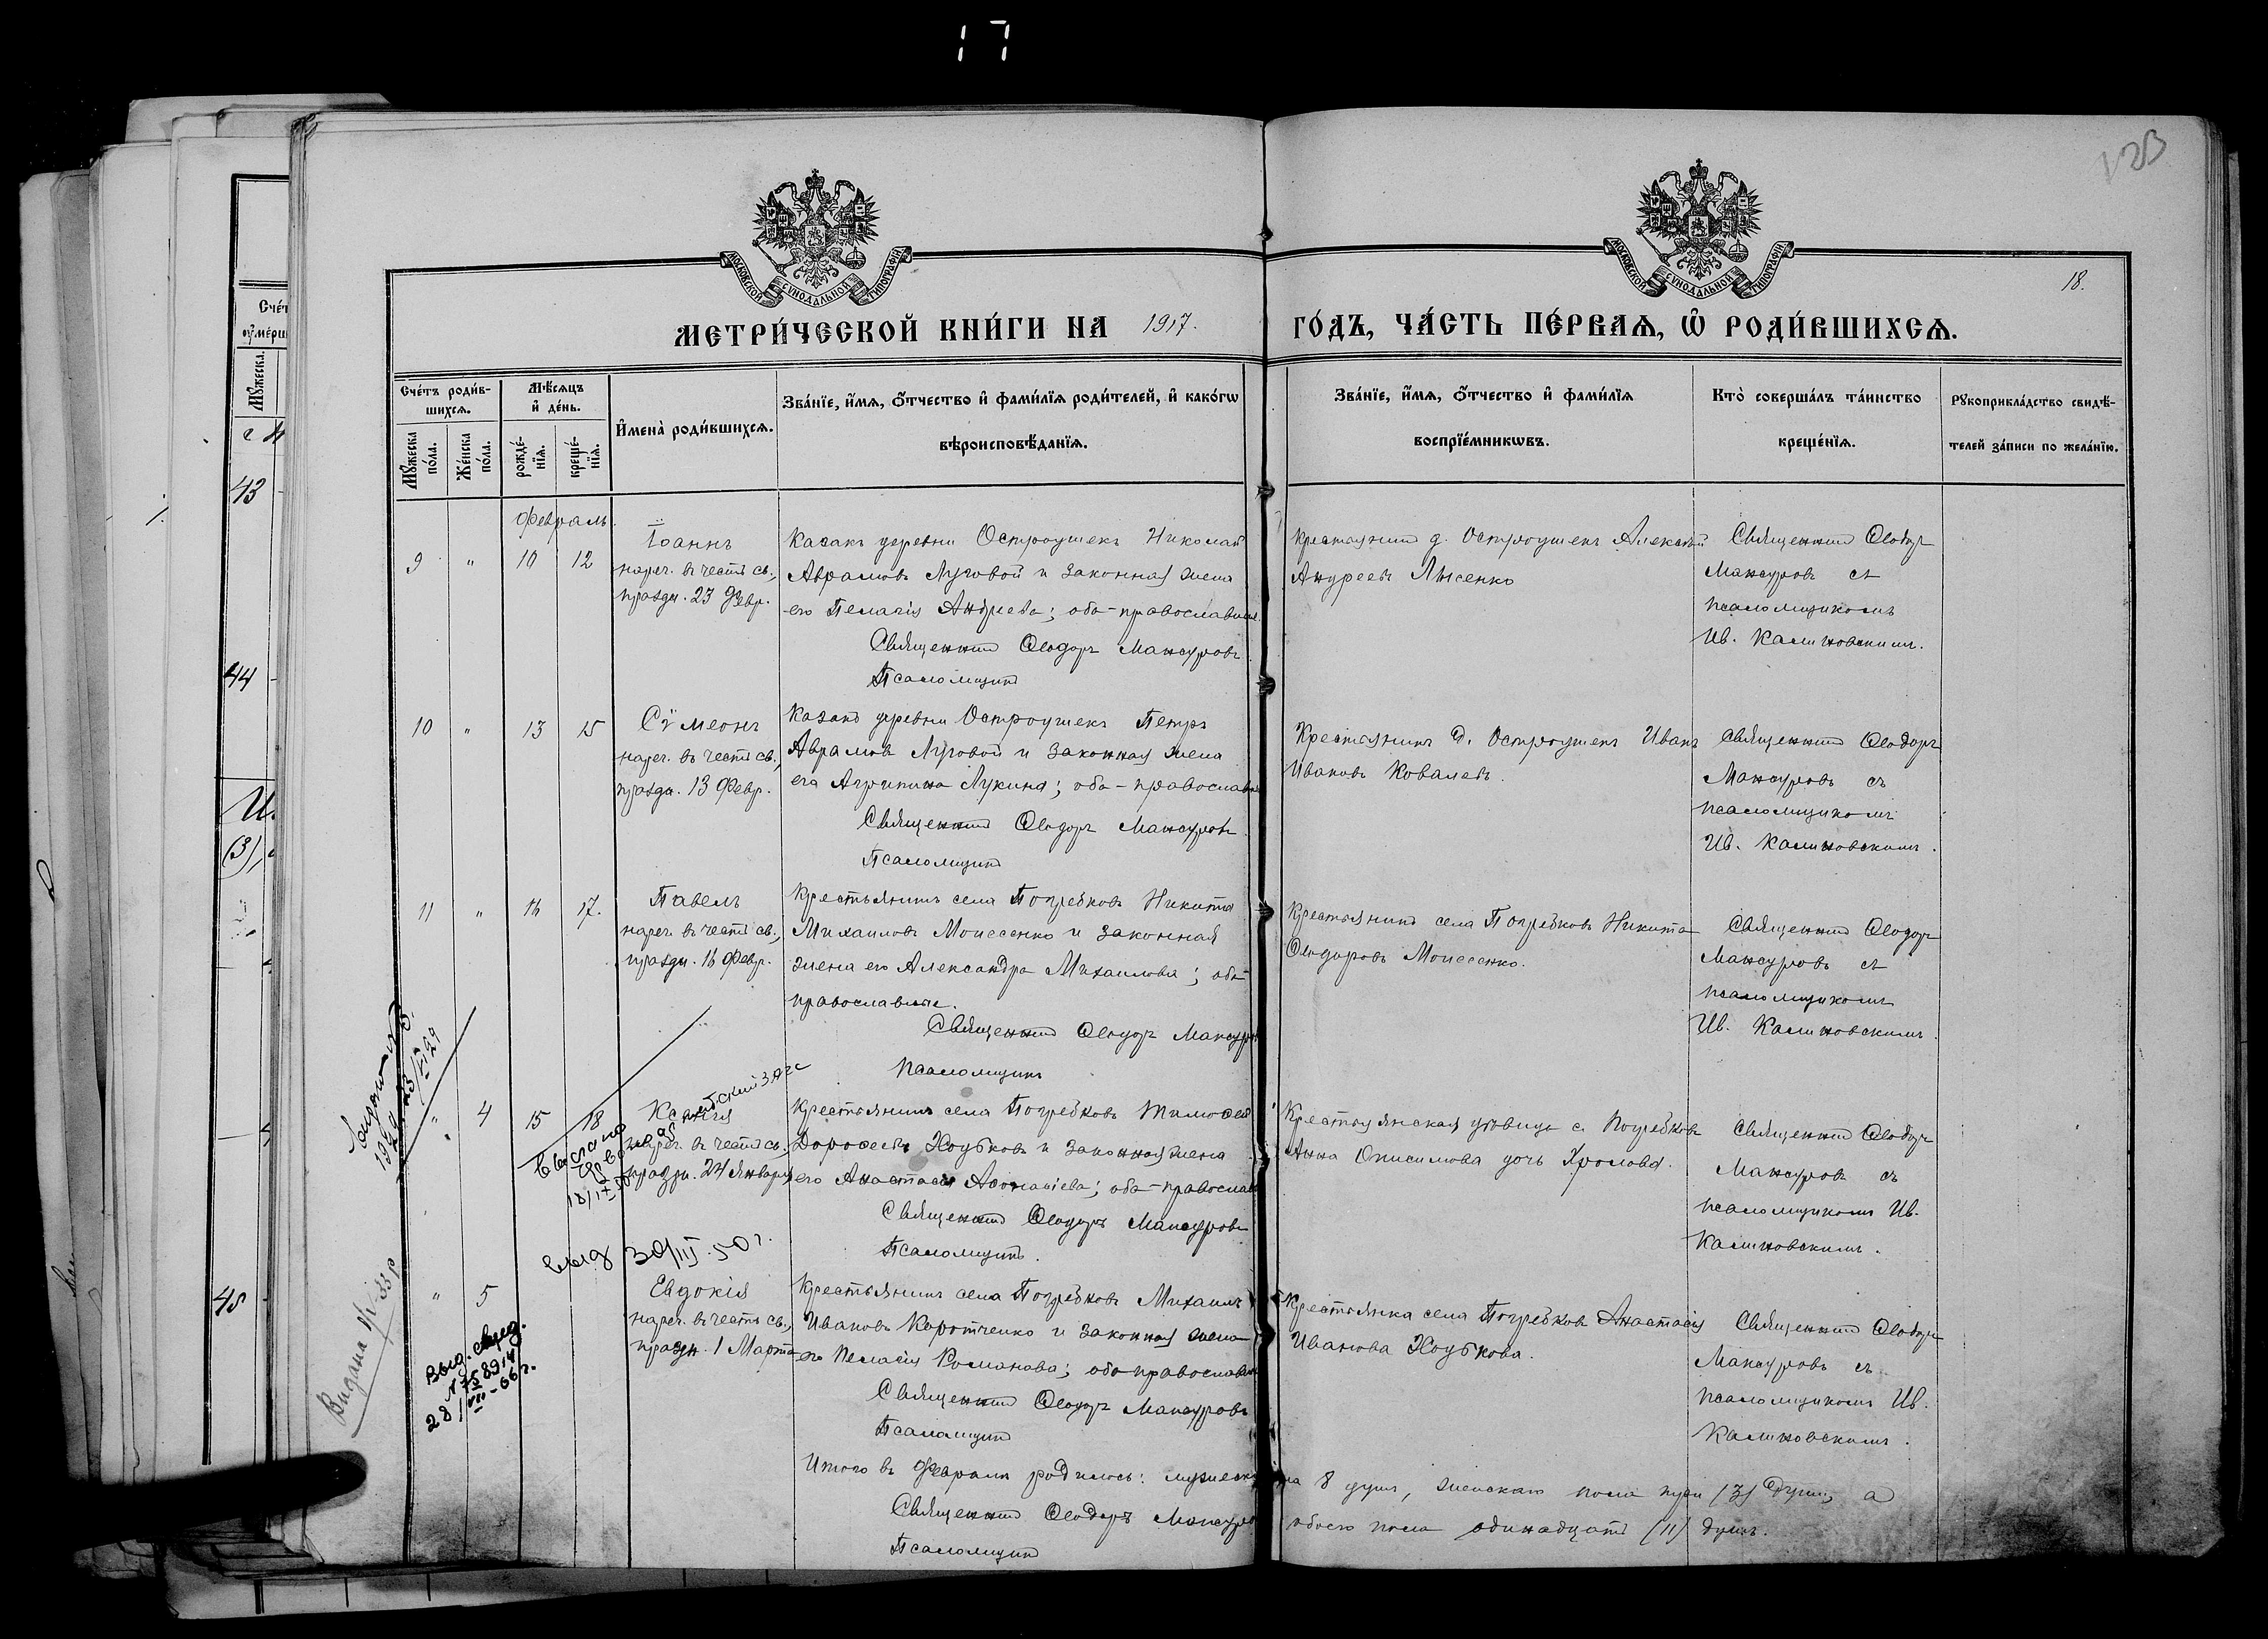 17
123
18.
МОСКОВСКОЙ СѴНОДАЛЬНОЙ ТИПОГРАФІИ
МОСКОВСКОЙ СѴНОДАЛЬНОЙ ТИПОГРАФІИ
МЕТРИ́ЧЕСКОЙ КНИ́ГИ НА 1917. ГО́ДЪ, ЧА́СТЬ ПЕ́РВАѦ, Ѽ РОДИ́ВШИХСѦ.
Сче́тъ роди́в-
шихсѧ.
Мѣ́сѧцъ
и҆ де́нь.
Мꙋ́жеска
по́ла.
Же́нска
по́ла.
рожде́-
нїѧ.
креще́-
нїѧ.
И҆мена̀ роди́вшихсѧ.
Зва́нїе, и҆́мѧ, ѻ҆́тчество и҆ фами́лїѧ роди́телей, и҆ како́гѡ
вѣроисповѣ́данїѧ.
Зва́нїе, и҆́мѧ, ѻ҆́тчество и҆ фами́лїѧ
воспрїе́мникѡвъ.
Кто̀ соверша́лъ та́инство
креще́нїѧ.
Рꙋкоприкла́дство свидѣ́-
телей за́писи по жела́нїю.
Февраль.
9 " 10 12
Іоаннъ
нареч. въ честь св.,
праздн. 23 Февр.
Казакъ деревни Острoушекъ Николай
Аврамовъ Луговой и законная жена
его Пелагія Андреева; оба-православные.
Священникъ Ѳеодоръ Мансуровъ.
Псаломщикъ
Крестьянинъ д. Остроушекъ Алексѣй
Андреевъ Лысенко
Священникъ Ѳеодоръ
Мансуровъ съ
псаломщикомъ
Ив. Калиновскимъ.
10 " 13 15
Сѵмеонъ
нареч. въ честь св.,
праздн. 13 Февр.
Казакъ деревни Остроушекъ Петръ
Аврамовъ Луговой и законная жена
его Агрипина Лукина; оба-православн
Священникъ Ѳеодоръ Мансуровъ.
Псаломщикъ
Крестьянинъ д. Остроушекъ Иванъ
Ивановъ Ковалевъ.
Священникъ Ѳеодоръ
Мансуровъ съ
псаломщикомъ
Ив. Калиновскимъ.
11 " 16 17.
Павелъ
нареч. въ честь св.,
праздн. 16 Февр.
Крестьянинъ села Погребковъ Никита
Михаиловъ Моисеенко и законная
жена его Александра Михаилова; оба-
православные.
Священникъ Ѳеодоръ Мансуровъ
Псаломщикъ
Крестьянинъ села Погребковъ Никита
Ѳеодоровъ Моисеенко.
Священникъ Ѳеодоръ
Мансуровъ съ
псаломщикомъ
Ив. Калиновскимъ.
" 4 15 18
Ксенія
нареч. въ честь св.,
праздн. 24 Января
Крестьянинъ села Погребковъ Тимоѳей
Дороѳеевъ Ходбковъ и законная жена
его Анастасія Аѳонасіева; оба-православ
Священникъ Ѳеодоръ Мансуровъ
Псаломщикъ.
Крестьянская дѣвица с. Погребковъ
Анна Онисимова дочь Фролова.
Священникъ Ѳеодоръ
Мансуровъ съ
псаломщикомъ Ив.
Калиновскимъ.
Выслано
выд 30/III.50 г.
" 5
Евдокія
нареч. въ честь св.,
праздн. 1 Марта
Крестьянинъ села Погребковъ Михаилъ
Ивановъ Коротченко и законная жена
его Пелагія Романова; оба православн
Священникъ Ѳеодоръ Мансуровъ
Псаломщикъ
Крестьянка села Погребковъ Анастасія
Иванова Ходбкова.
Священникъ Ѳеодоръ
Мансуровъ съ
псаломщикомъ Ив.
Калиновскимъ.
Видана
Выд. свид.
28/VII-66 г.
Итого въ Февралѣ родилось: мужеска пола 8 душъ, женскаго пола три (3) души, а
обоего пола одинадцать (11) душъ.
Священникъ Ѳеодоръ Мансуровъ
Псаломщикъ
43
44
45